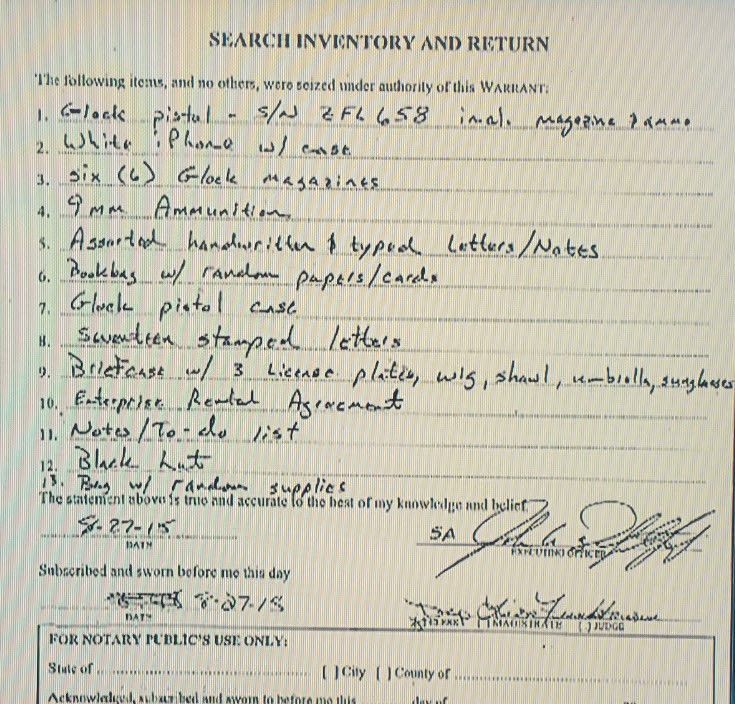 SEARCH INVENTORY AND RETURN
The following items, and no others, were seized under authority of this WARRANT:
1. Glock pistol - S/N ZFL 658 incl. magazine & ammo
2. White iPhone w/ case
3. six (6) Glock magazines
4. 9mm Ammunition
5. Assorted handwritten & typed Letters/Notes
6. Bookbag w/ random papers/cards
7. Glock pistol case
8. Seventeen stamped letters
9. Briefcase w/ 3 License plates, wig, shawl, umbrella, sunglasses
10. Enterprise Rental Agreement
11. Notes/To-do list
12. Black hat
13. Bag w/ random supplies
The statement above is true and accurate to the best of my knowledge and belief.
8-27-15 SA
DATE EXECUTING OFFICER
Subscribed and sworn before me this day
8-27-15
DATE CLERK [ ] MAGISTRATE [ ] JUDGE
FOR NOTARY PUBLIC'S USE ONLY:
State of [ ] City [ ] County of
Acknowledged, subscribed and sworn to before me this day of